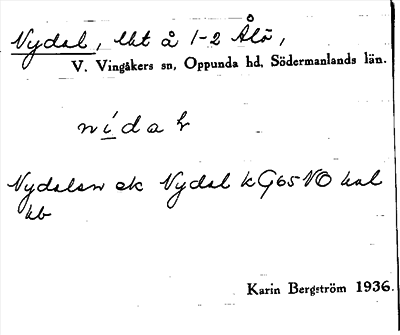 Nydal, lht å 1-2 Ålö,
V. Vingåkers sn, Oppunda hd, Södermanlands län.
nídał
Nydalen ek Nydal kG65NO kal
kb
Karin Bergström 1936.